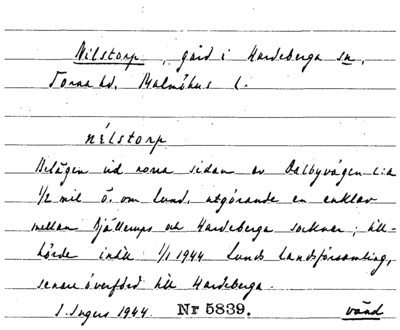 Nilstorp, gård i Hardeberga sn,
Torna hd. Malmöhus l.
nílstorp
Belägen vid norra sidan av Dalbyvägen c:a
1/2 mil ö. om Lund, utgörande en enklav
mellan Fjällerups och Hardeberga socknar; till-
hörde intill 1/1 1944 Lunds landsförsamling,
senare överförd till Hardeberga.
S. Ingers 1944. Nr 5839. vänd